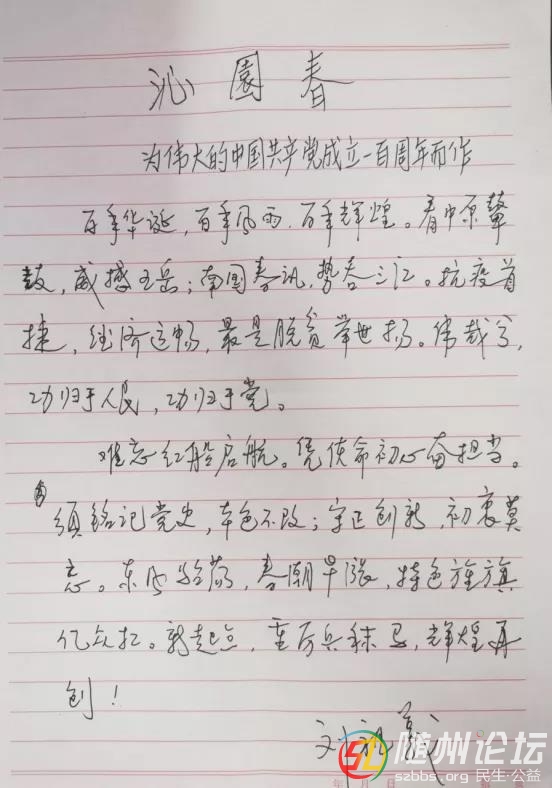 沁園春
为伟大的中国共产党成立一百周年而作
百年华诞,百年风雨,百年辉煌。看中原鼙
鼓,威撼五岳;南国春讯,势吞三江。抗疫首
捷,经济运畅,最是脱贫举世扬。伟哉兮,
功归于人民,功归于党。
难忘红船启航。凭使命初心奋担当。
须铭记党史,本色不改;守正创新,初衷莫
忘。东风骀荡,春潮早涨,特色旌旗
亿众扛。新起点,重厉兵秣马,辉煌再
创!
刘祖义
随州论坛
szbbs.org 民生·公益
年 月 日